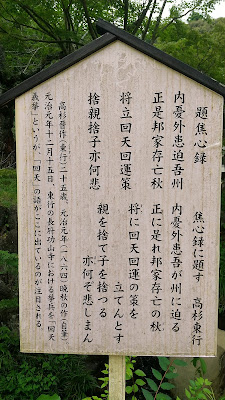 題焦心録　焦心録に題す　高杉東行
内憂外患迫吾州　内憂外患吾が州に迫る
正是邦家存亡秋　正に是れ邦家存亡の秋
将立回天回運策　将に回天回運の策を
立てんとす
捨親捨子亦何悲　親を捨て子を捨つる
亦何ぞ悲しまん
高杉晋作（東行）二十五歳、元治元年（一八六四）晩秋の作（自筆）
元治元年十二月十五日、東行の長府功山寺における挙兵を「回天
義挙」というが、「回天」の語がここに出ているのが注目される。